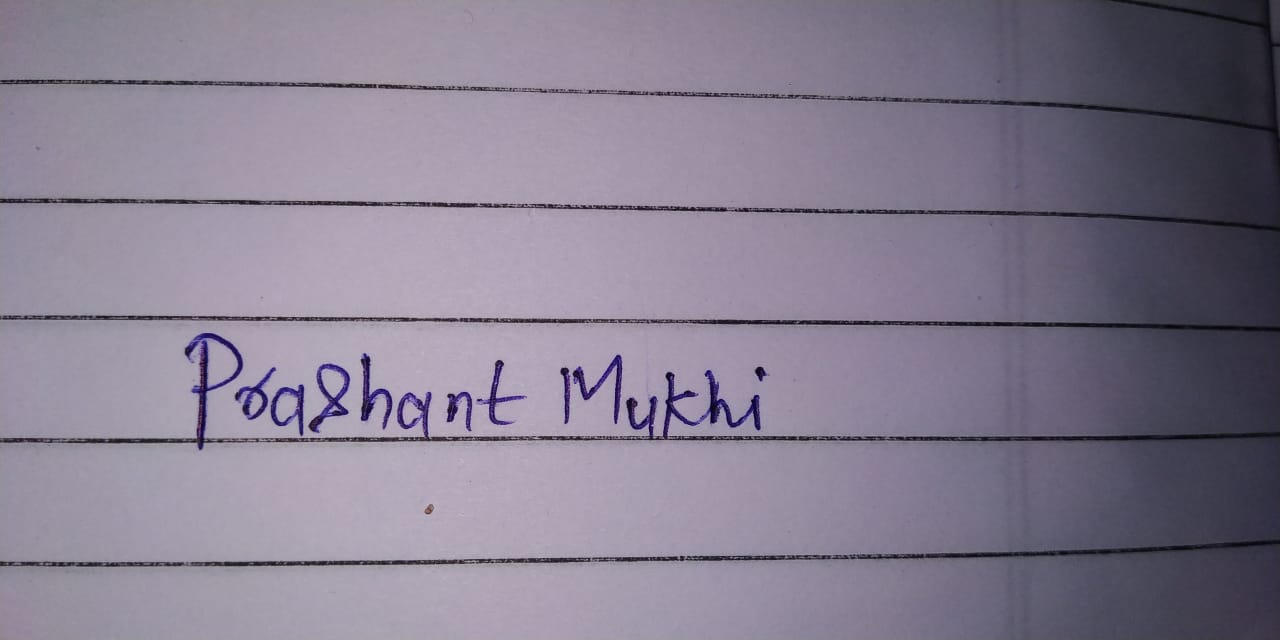 Prashant Mukhi